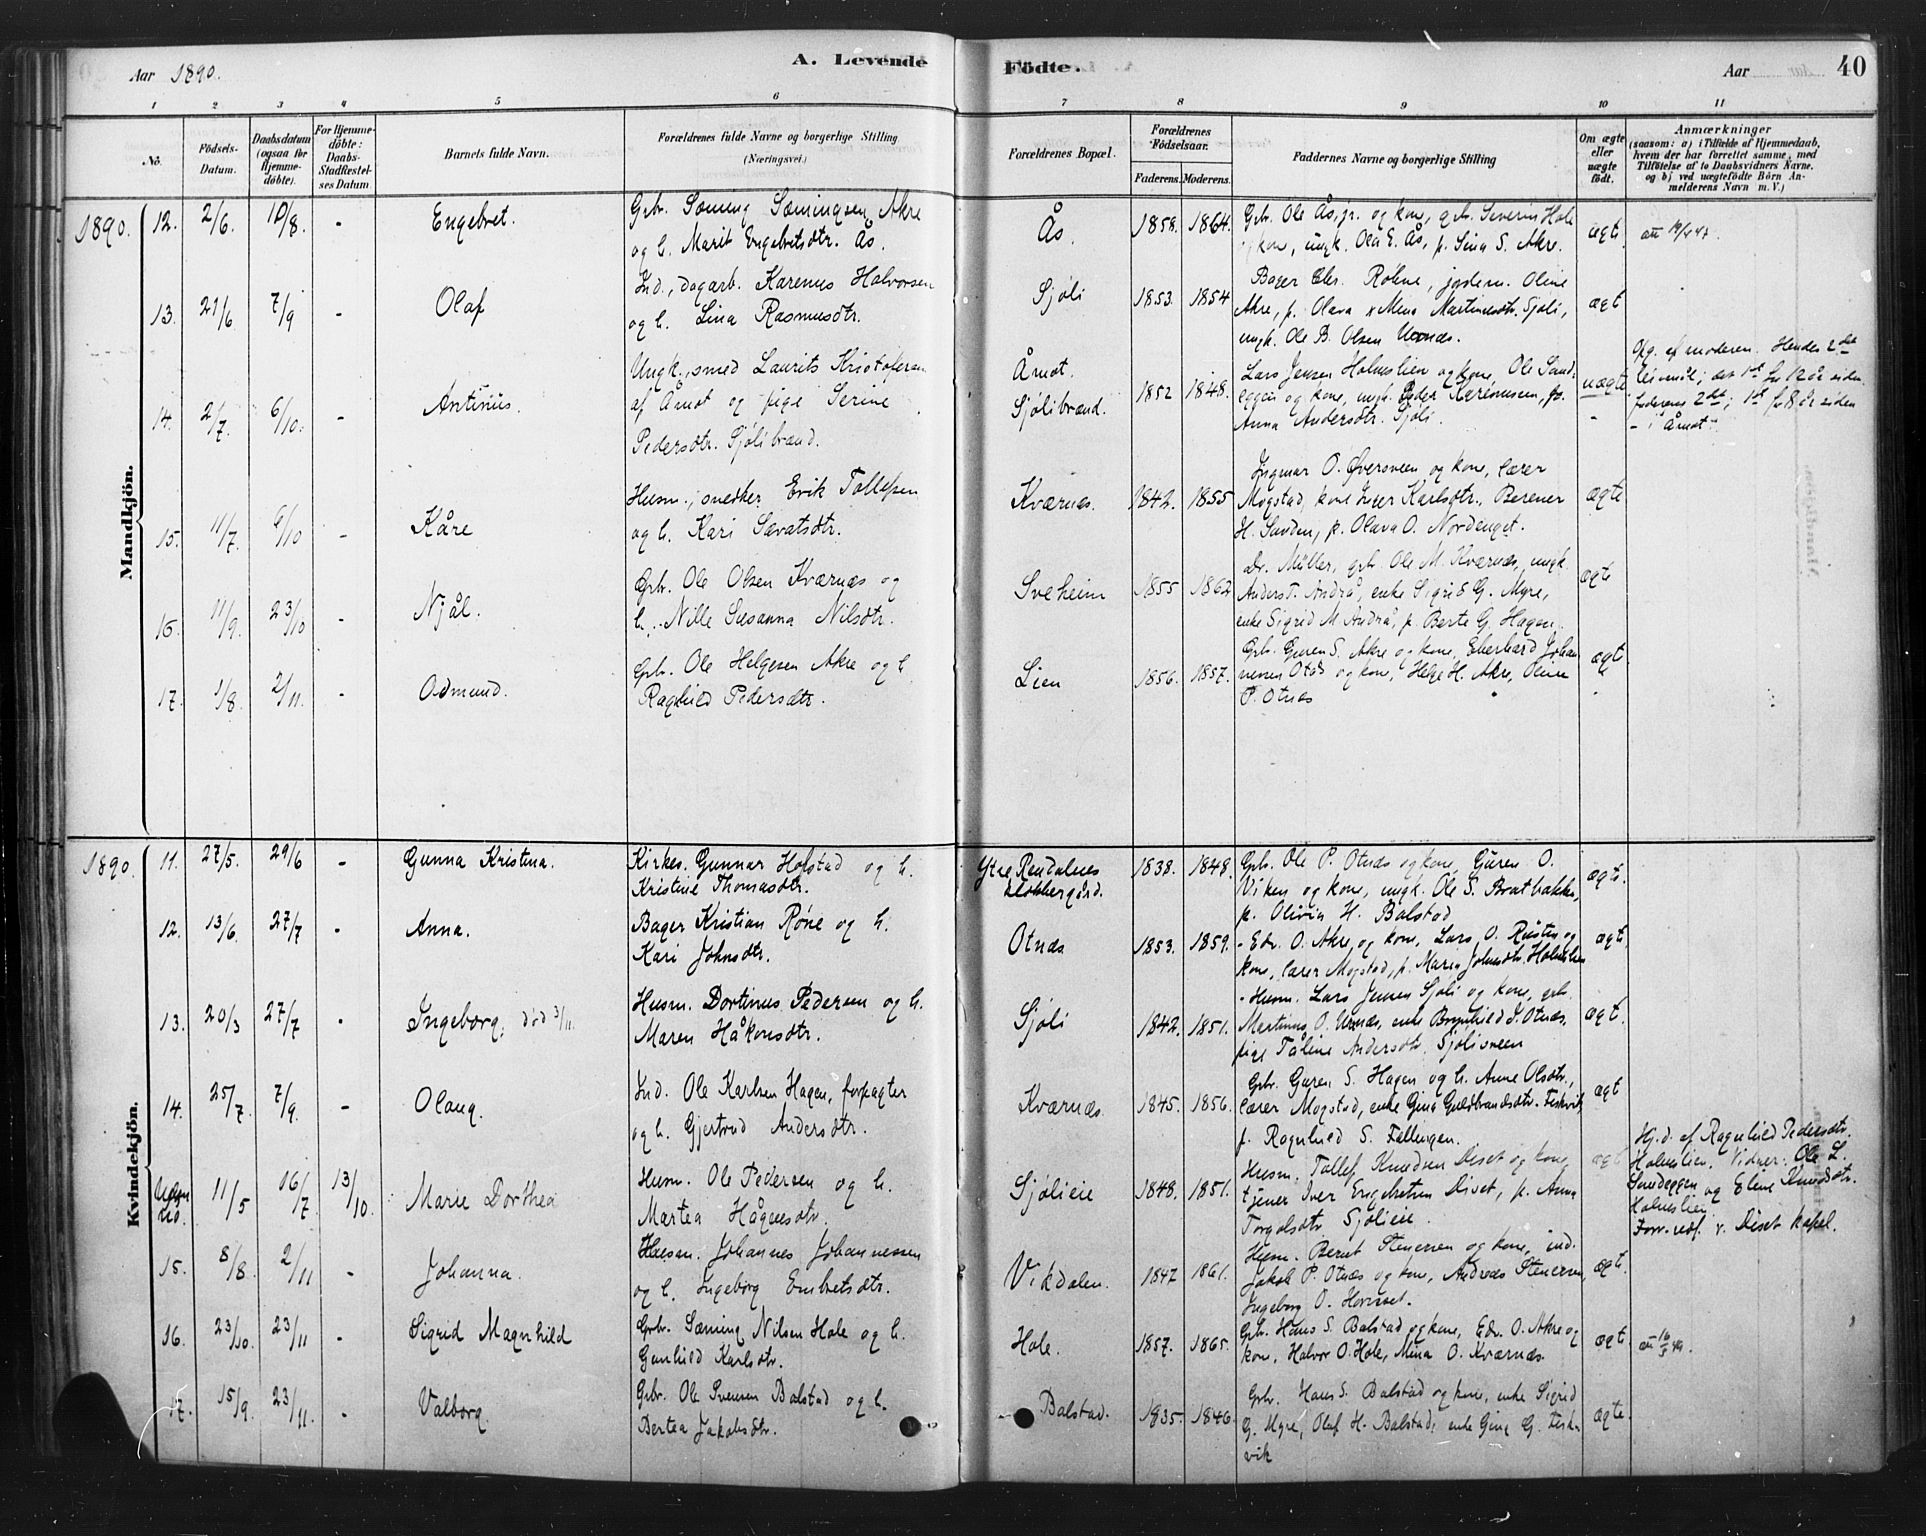 Aar 1890.
A. Levende
Födte.
Aar
40
1 2 3 4 5 6 7 8 9 10 11
No.
Födsels-
Datum.
Daabsdatum
(ogsaa for
Hjemme-
döbte).
For Hjemme-
döbte:
Daabs-
Stadfæstel-
ses Datum
Barnets fulde Navn.
Forældrenes fulde Navne og borgerlige Stilling
(Næringsvei.)
Forældrenes Bopæl.
Forældrenes
Födselsaar.
Faderens. Moderens.
Faddernes Navne og borgerlige Stilling
Om ægte
eller
uægte
födt.
Anmærkninger
(saasom: a) i Tilfælde af Hjemmedaab,
hvem der har forrettet samme, med
Tilföielse af to Daabsvidners Navne,
og b) ved uægtefödte Börn An-
melderens Navn m. V.)
Mandkjön.
1890. 12. 2/6. 10/8. - Engebret.
Gbr. Sæming Sæmingsen Akre
og h. Marit Engebretsdtr. Ås.
Ås. 1858. 1864.
Gbr. Ole Ås, jr. og kone, gbr. Severin Hole
og kone, ungk. Ola E. Ås, p. Sina S. Akre.
ægte
13. 21/6 7/9 - Olaf
Ind., dagarb. Karenus Halvorsen
og h. Lina Rasmusdtr.
Sjöli 1853. 1854
Bager Chr. Röhne, jordem. Oline
Akre, p. Olava & Mena Martinusdtr. Sjöli,
ungk. Ole B. Olsen Urnæs.
ægt
14. 2/7. 6/10. - Antinus.
Ungk., smed Laurits Kristofersen
af Åmot og pige Serine
Pedersdtr. Sjölibrænd.
Åmot.
Sjölibrænd. 1852 1848.
Lars Jensen Holmslien og kone, Ole Sand-
eggen og kone, ungk. Peder Karenusen, p.
Anna Andersdtr. Sjöli.
uægte
Opg. af moderen. Hendes 2det
leiermål; det 1ste for 12 år siden
faderens 2det; 1ste for 8 år siden
- i Åmot -
15. 11/7. 6/10 - Kåre
Husm., snedker Erik Tollefsen
og h. Kari Savatsdtr.
Kværnæs. 1842. 1855
Ingmar O. Översveen og kone, lærer
Mogstad, kone Inger Karlsdtr., Berener
H. Sanden, p. Olava O. Nordenget.
ægte
16. 11/9. 23/10 - Njål.
Gbr. Ole Olsen Kværnæs og
h. Nille Susanna Nilsdtr.
Sveheim 1855 1862
Dr. Müller, gbr. Ole M. Kværnæs, ungk.
Anders T. Andrå, enke Sigrid G. Myre,
enke Sigrid M. Andrå, p. Berte G. Hagen.
ægte
17. 1/8. 2/11. - Odmund.
Gbr. Ole Helgesen Akre og h.
Ragnhild Pedersdtr.
Lien 1856. 1857.
Gbr. Guren S. Akre og kone, Eberhard Johan-
nesen Otnæs og kone, Helge H. Akre, Oline
P. Otnæs
ægte
Kvindekjön.
1890. 11. 27/5. 29/6 - Gunna Kristina.
Kirkes. Gunnar Hofstad og h.
Kristine Thomasdtr.
Ytre Rendalens
klokkergård. 1838. 1848.
Gbr. Ole P. Otnæs og kone, Guren O.
Viken og kone, ungk. Ole S. Bratbakken,
p. Olivia H. Balstad
ægte.
12. 13/6. 27/7 - Anna.
Bager Kristian Röne og h.
Kari Johnsdtr.
Otnæs 1853. 1859.
- Edv. O. Akre og kone, Lars O. Rusten og
kone, lærer Mogstad, p. Maria Johnsdtr. Holmslien
ægte.
13. 20/3 27/7 - Ingeborg, död 3/11.
Husm. Dortinus Pedersen og h.
Maren Håkonsdtr.
Sjöli 1842. 1851.
- Husm. Lars Jensen Sjöli og kone, gbr.
Martinus O. Urnæs, enke Brynhild I. Otnæs,
pige Tåline Andersdtr. Sjölisveen
ægt.
14. 25/7. 7/9. - Olaug.
Ind. Ole Karlsen Hagen, forpagter
og h. Gjertrud Andersdtr.
Kværnæs. 1845. 1856.
Gbr. Guren S. Hagen og h. Anne Olsdtr.,
lærer Mogstad, enke Gina Guldbrandsdtr. Fiskvik,
p. Ragnhild S. Fallengen.
ægt
Uden
no. 11/5 16/7 13/10. Marie Dorthea
Husm. Ole Pedersen og h.
Martea Hågensdtr.
Sjölieie 1848. 1851.
Husm. Tollef Knudsen Diset og kone,
tjener Iver Engebretsen Diset, p. Anna
Torgalsdtr. Sjölieie.
ægt
Hj.d. af Ragnhild Pedersdtr.
Holmslien. Vidner: Ole L.
Sandeggen og Eline Knudsdtr.
Holmslien.
Forr. red. v. Diset kapel.
15. 8/8. 2/11 - Johanna.
Husm. Johannes Johannessen
og h. Ingeborg Embretsdtr.
Vikdalen. 1847 1861.
Husm. Bernt Stenersen og kone, ind.
Jakob P. Otnæs og kone, Andreas Stenersen,
Ingeborg O. Hornset.
ægte.
16. 23/10. 23/11 - Sigrid Magnhild
Gbr. Sæming Nilsen Hole og h.
Gunhild Karlsdtr.
Hole. 1857. 1865.
Gbr. Hans S. Balstad og kone, Edv. O. Akre og
kone, Halvor O. Hole, Mina O. Kværnæs.
ægte
17. 15/9. 23/11. - Valborg.
Gbr. Ole Svensen Balstad og h.
Bertea Jakobsdtr.
Balstad. 1835. 1846.
Gbr. Hans S. Balstad og kone, enke Sigrid
G. Myre, Olaf H. Balstad, enke Gina G. Fisk-
vik
ægte.